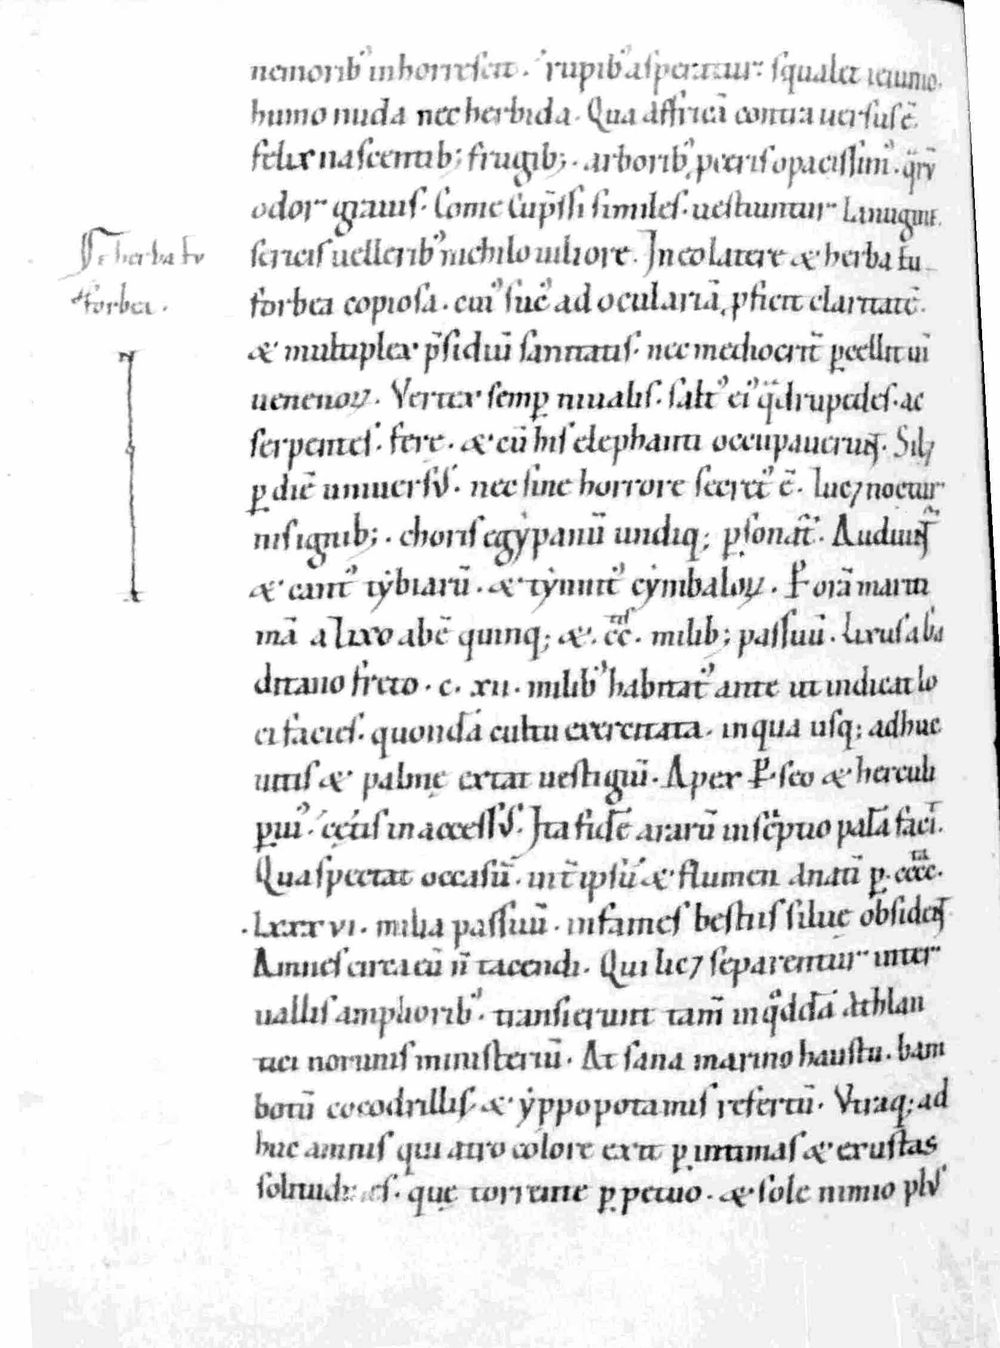 nemorib᾽ inhorrescit. rupib᾽ asperatur. squalet ieiuno.
humo nuda nec herbida. Qua affricā contra uersus ē.
felix nascentib; frugib;. arborib᾽ p̄ceris opacissim᾽. q̄rū
odor grauis. Come cup̄ssi similes. uestiuntur lanugine.
sericis uellerib᾽ nichilo uiliore. In eo latere & herba tu
De herba tu
forbea.
forbea copiosa. cui᾽ suc᾽ ad oculariā p̄ficit claritatē.
& multiplex p̄sidiū sanitatis. nec mediocrit̄ p̲cellit uī
uenenoꝝ. Vertex semp̲ niualis. salt᾽ ei᾽ q̄drupedes. ac
serpentes. fere. & cū his elephanti occupauerun̄t. Silꝫ
p̲ diē uniuersus. nec sine horrore secret᾽ ē. lucꝫ noctur
nis ignib;. choris egẏpanū undiq; p̲sonat᾽. Audiunt̄
& cant᾽ tẏbiarū. & tẏnnit᾽ cẏmbaloꝝ. P̲ orā mariti
mā a lixo abē quinq; &. cc. milib; passuū. Lixus a ga
ditano freto. c. xii. milib᾽ habitat᾽ ante ut indicat lo
ci facies. quondā cultu exercitata. in qua usq; adhuc
uitis & palmę extat uestigiū. Apex P̲seo & herculi
p̲ui᾽. cęt̄is inaccessus. Ita fidē ararū insc̄ptio palā facit.
Qua spectat occasū. int̄ ipsū & flumen anatī p̲. cccc.
.lxxxvi. milia passuū. infames bestiis silue obsident̄
Amnes circa eū ñ tacendi. Qui licꝫ separentur inter
uallis ampliorib᾽. transierunt tam̄ in q̄ddā Athlan
tici nominis ministeriū. At sana marino haustu. bam
botū cocodrillis. & ẏppopotamis refertū. Vtraq; ad
huc amnis qui atro colore exit p̲ intimas & exustas
solitudines. quę torrente p̲petuo. & sole nimio plus